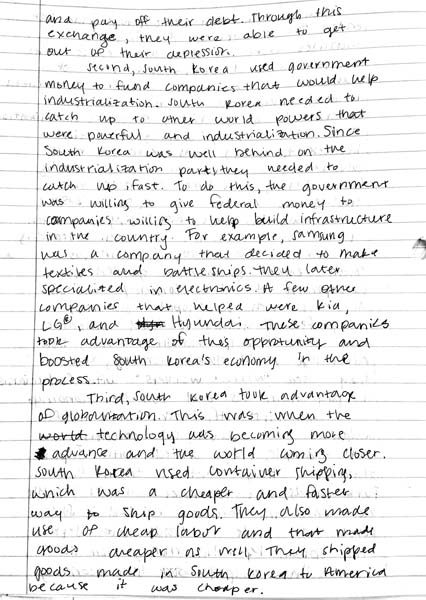 and pay off their debt. Through this
exchange, they were able to get
out of their depression.
Second, South Korea used government
money to fund companies that would help
industrialization. South Korea needed to
catch up to other world powers that
were powerful and industrialization. Since
South Korea was well behind on the
industrialization part, they needed to
catch up fast. To do this, the government
was willing to give federal money to
companies willing to help build infrastructure
in the country. For example, Samsung
was a company that decided to make
textiles and battleships. They later
specialized in electronics. A few other
companies that helped were Kia,
LG, and Hyundai. These companies
took advantage of this opportunity and
boosted South Korea's economy in the
process.
Third, South Korea took advantage
of globalization. This was when the
world technology was becoming more
advance and the world coming closer.
South Korea used container shipping,
which was a cheaper and faster
way to ship goods. They also made
use of cheap labor and that made
goods cheaper as well. They shipped
goods made in South Korea to America
because it was cheaper.